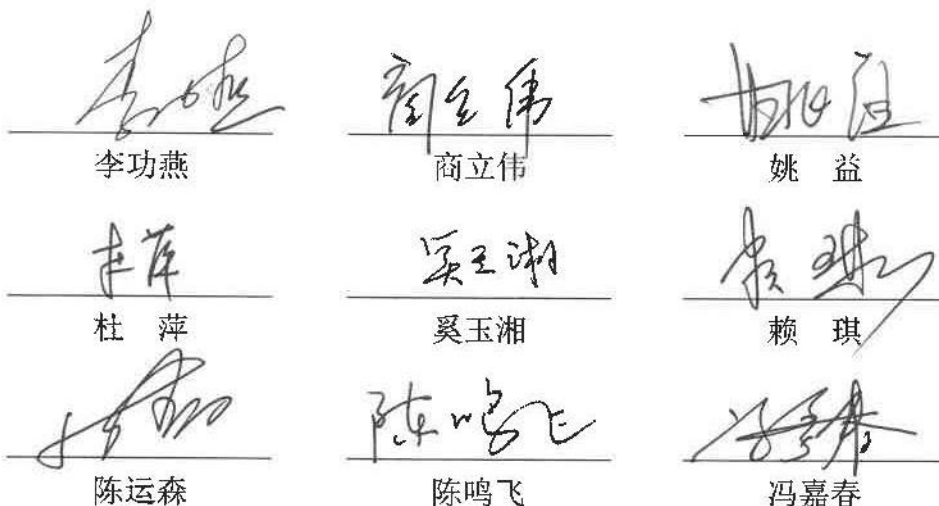 李功燕 商立伟 姚 益
杜 萍 奚玉湘 赖 琪
陈运森 陈鸣飞 冯嘉春